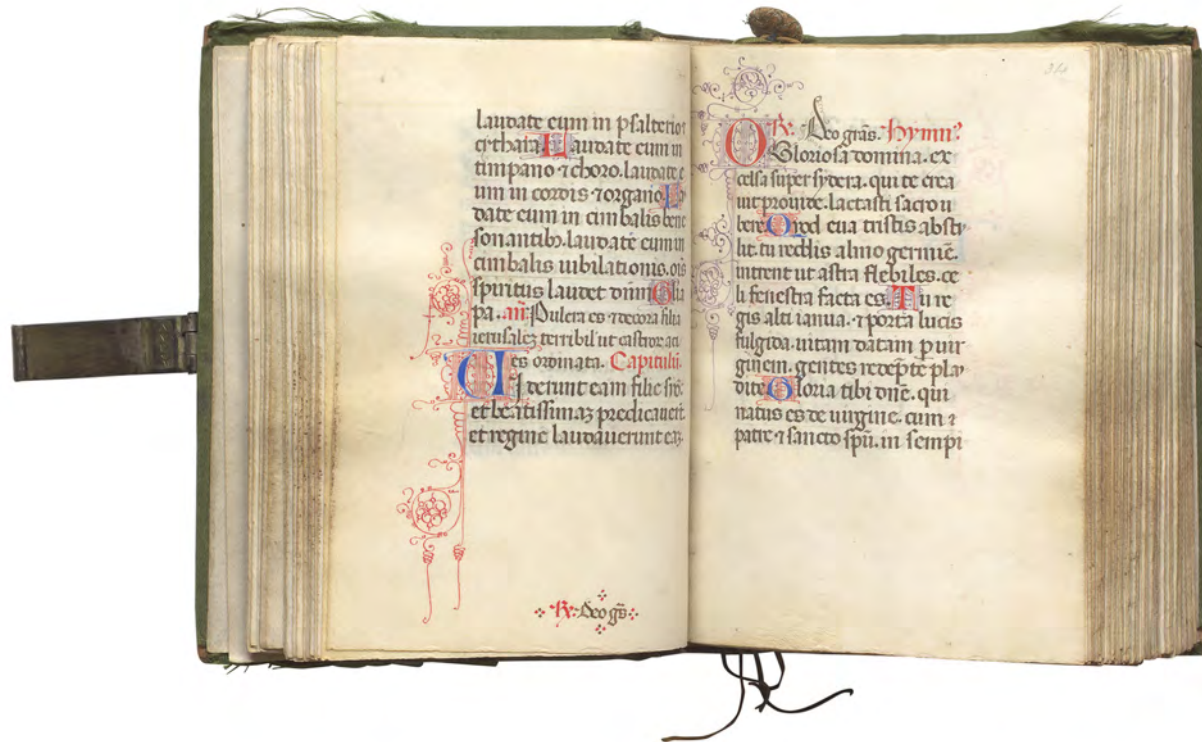 laudate eum in psalterio ⁊
cythara. Laudate eum in
timpano ⁊ choro. laudate e
um in cordis ⁊ organo. Lau
date eum in cimbalis bene
sonantibꝫ. laudate eum in
cimbalis iubilationis. oīs
spiritus laudet dn̄m Glīa
pa. an̄. Pulcra es ⁊ decora filia
ierusaleꝫ terribil' ut castroꝝ aci
es ordinata. Capitulū.
Uiderunt eam filie sīo.
et beatissimaꝫ predicauerūt.
et regine laudauerunt eaꝫ.
℟. Deo gr̄s
34
℟. Deo grās. Hymn'.
O Gloriosa domina. ex
celsa super sydera. qui te crea
uit prouide. lactasti sacro u
bere. Qvod eua tristis absty
lit. tu reddis almo germīe.
intrent ut astra flebiles. ce
li fenestra facta es. Tu re
gis alti ianua. ⁊ porta lucis
fulgida. uitam datam p uir
ginem. gentes redēpte plau
dite. Gloria tibi dn̄e. qui
natus es de uirgine. cum
patre ⁊ sancto spū. in sempi